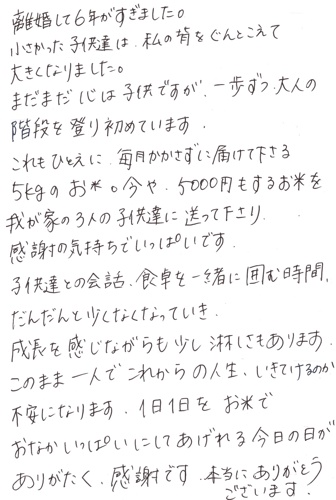 離婚して6年がすぎました。
小さかった子供達は、私の背をぐんとこえて
大きくなりました。
まだまだ心は子供ですが、一歩ずつ、大人の
階段を登り初めています。
これもひとえに、毎月かかさずに届けて下さる
5kgのお米。今や、5000円もするお米を
我が家の3人の子供達に送って下さり、
感謝の気持ちでいっぱいです。
子供達との会話、食卓を一緒に囲む時間、
だんだんと少くなくなっていき、
成長を感じながらも少し淋しさもあります。
このまま一人でこれからの人生、いきてけるのか
不安になります。1日1日をお米で
おなかいっぱいにしてあげれる今日の日が
ありがたく、感謝です。本当にありがとう
ございます。